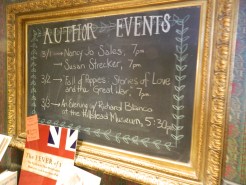 AUTHOR EVENTS
3/1 → Nancy Jo Sales, 7pm
Susan Strecker, 7pm
3/2 → Fall of Poppies: Stories of Love
and the Great War, 7pm
3/3 → An Evening w/ Richard Blanco
at the Milestead Museum, 5:30pm
The FEVER of